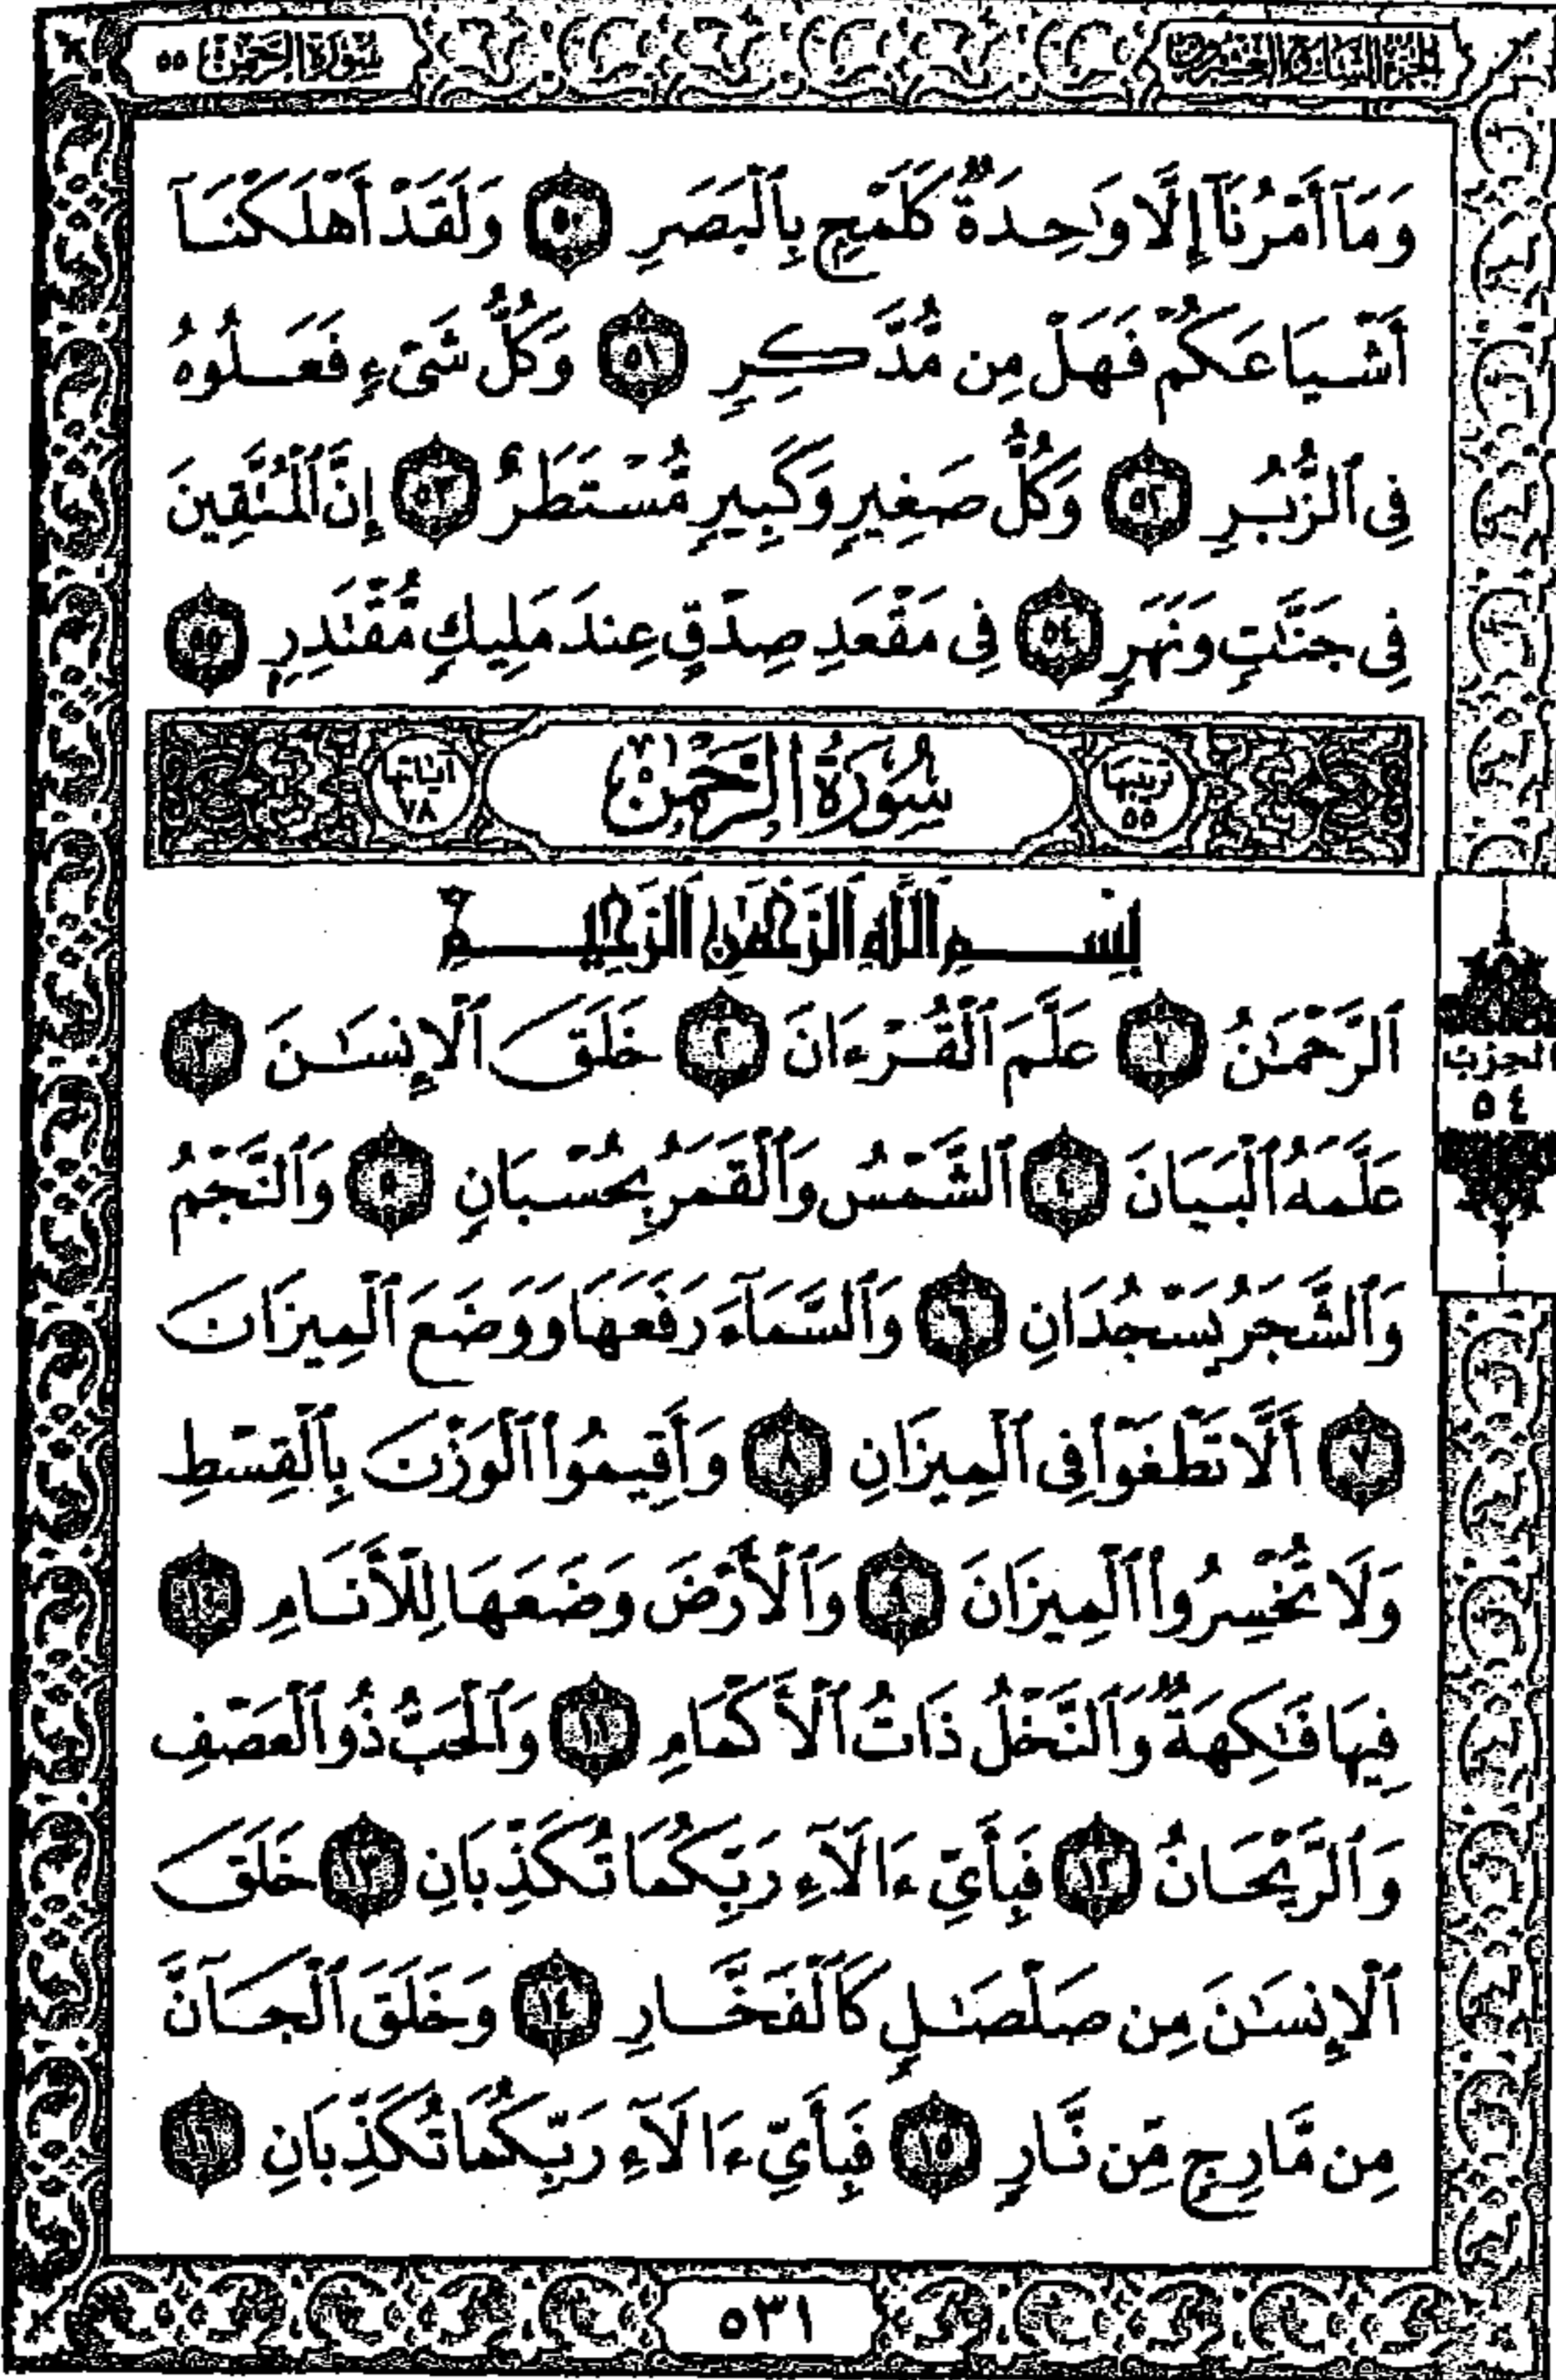 الجزء السابع والعشرون
سورة الرحمن ٥٥
وَمَآ أَمْرُنَآ إِلَّا وَٰحِدَةٌ كَلَمْحٍۭ بِٱلْبَصَرِ ٥٠ وَلَقَدْ أَهْلَكْنَآ
أَشْيَاعَكُمْ فَهَلْ مِن مُّدَّكِرٍ ٥١ وَكُلُّ شَىْءٍ فَعَلُوهُ
فِى ٱلزُّبُرِ ٥٢ وَكُلُّ صَغِيرٍ وَكَبِيرٍ مُّسْتَطَرٌ ٥٣ إِنَّ ٱلْمُتَّقِينَ
فِى جَنَّٰتٍ وَنَهَرٍ ٥٤ فِى مَقْعَدِ صِدْقٍ عِندَ مَلِيكٍ مُّقْتَدِرٍۭ ٥٥
ترتيبها ٥٥
سُورَةُ الرَّحْمٰن
آياتها ٧٨
بِسْمِ ٱللَّهِ ٱلرَّحْمَٰنِ ٱلرَّحِيمِ
ٱلرَّحْمَٰنُ ١ عَلَّمَ ٱلْقُرْءَانَ ٢ خَلَقَ ٱلْإِنسَٰنَ ٣
عَلَّمَهُ ٱلْبَيَانَ ٤ ٱلشَّمْسُ وَٱلْقَمَرُ بِحُسْبَانٍ ٥ وَٱلنَّجْمُ
وَٱلشَّجَرُ يَسْجُدَانِ ٦ وَٱلسَّمَآءَ رَفَعَهَا وَوَضَعَ ٱلْمِيزَانَ
٧ أَلَّا تَطْغَوْا۟ فِى ٱلْمِيزَانِ ٨ وَأَقِيمُوا۟ ٱلْوَزْنَ بِٱلْقِسْطِ
وَلَا تُخْسِرُوا۟ ٱلْمِيزَانَ ٩ وَٱلْأَرْضَ وَضَعَهَا لِلْأَنَامِ ١٠
فِيهَا فَٰكِهَةٌ وَٱلنَّخْلُ ذَاتُ ٱلْأَكْمَامِ ١١ وَٱلْحَبُّ ذُو ٱلْعَصْفِ
وَٱلرَّيْحَانُ ١٢ فَبِأَىِّ ءَالَآءِ رَبِّكُمَا تُكَذِّبَانِ ١٣ خَلَقَ
ٱلْإِنسَٰنَ مِن صَلْصَٰلٍ كَٱلْفَخَّارِ ١٤ وَخَلَقَ ٱلْجَآنَّ
مِن مَّارِجٍ مِّن نَّارٍ ١٥ فَبِأَىِّ ءَالَآءِ رَبِّكُمَا تُكَذِّبَانِ ١٦
الحزب
٥٤
٥٣١